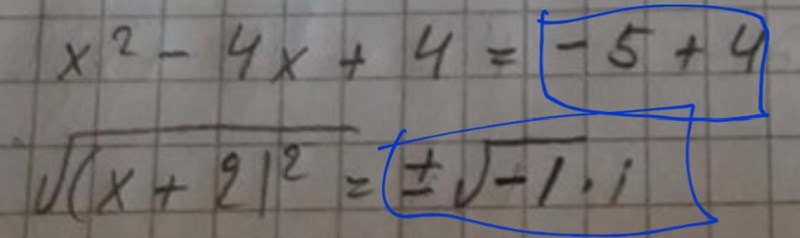 x² - 4x + 4 = - 5 + 4
√(x + 2)² = ± √-1 · i